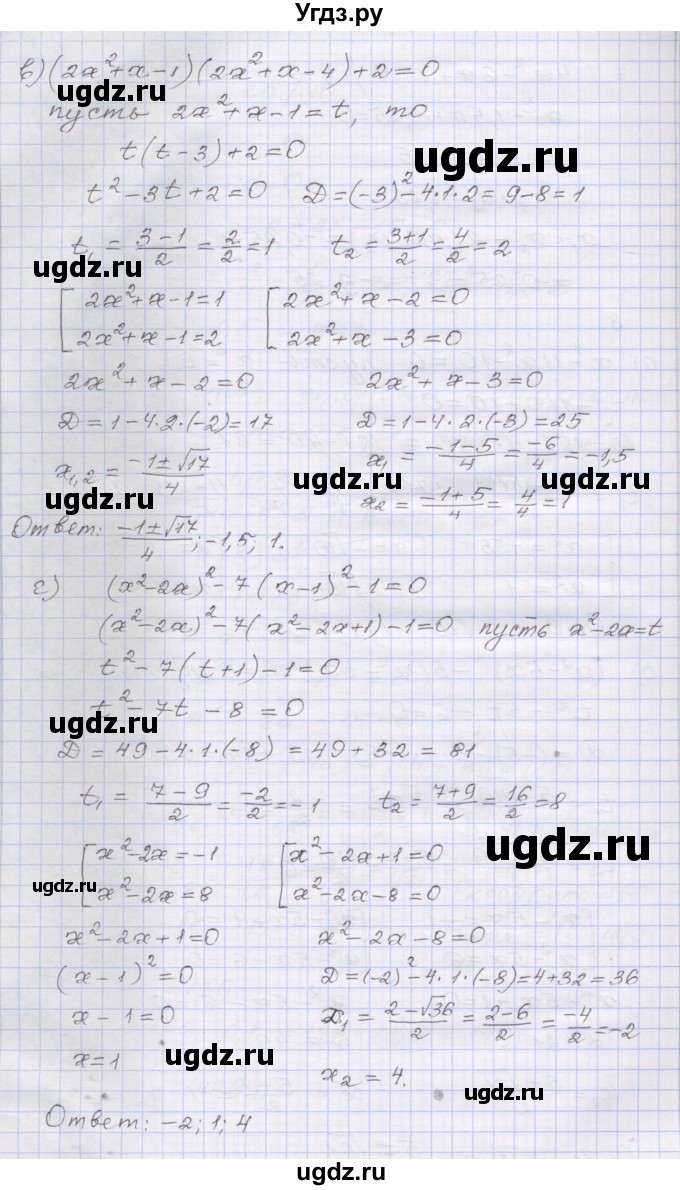 Угдз.ру
в) (2x²+x-1)(2x²+x-4)+2=0
пусть 2x²+x-1=t, то
t(t-3)+2=0
ugdz.ru
t²-3t+2=0 D=(-3)²-4·1·2=9-8=1
t₁ = (3-1)/2 = 2/2 = 1 t₂ = (3+1)/2 = 4/2 = 2
ugdz.ru ugdz.ru
[2x²+x-1=1 [2x²+x-2=0
[2x²+x-1=2 [2x²+x-3=0
2x²+x-2=0 2x²+x-3=0
D=1-4·2·(-2)=17 D=1-4·2·(-3)=25
x₁,₂ = (-1±√17)/4 x₁ = (-1-5)/4 = -6/4 = -1,5
ugdz.ru ugdz.ru ugdz.ru
x₂ = (-1+5)/4 = 4/4 = 1
Ответ: (-1±√17)/4; -1,5; 1.
г) (x²-2x)²-7(x-1)²-1=0
(x²-2x)²-7(x²-2x+1)-1=0 пусть x²-2x=t
t²-7(t+1)-1=0
t²-7t-8=0
ugdz.ru ugdz.ru
D=49-4·1·(-8)=49+32=81
t₁ = (7-9)/2 = -2/2 = -1 t₂ = (7+9)/2 = 16/2 = 8
[x²-2x=-1 [x²-2x+1=0
ugdz.ru
[x²-2x=8 [x²-2x-8=0
ugdz.ru
x²-2x+1=0 x²-2x-8=0
(x-1)²=0 D=(-2)²-4·1·(-8)=4+32=36
x-1=0 x₁ = (2-√36)/2 = (2-6)/2 = -4/2 = -2
ugdz.ru ugdz.ru
x=1 x₂=4.
Ответ: -2; 1; 4
ugdz.ru